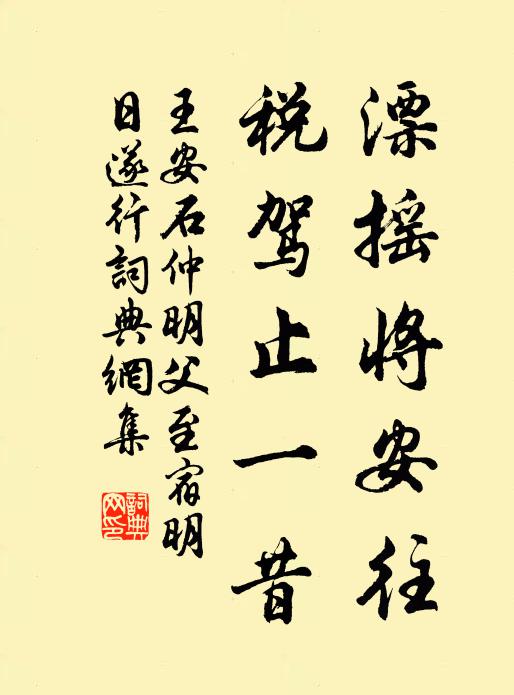 漂摇将安往
税驾止一昔
王安石仲明父至宿明
日遂行词典網集
詞典网印